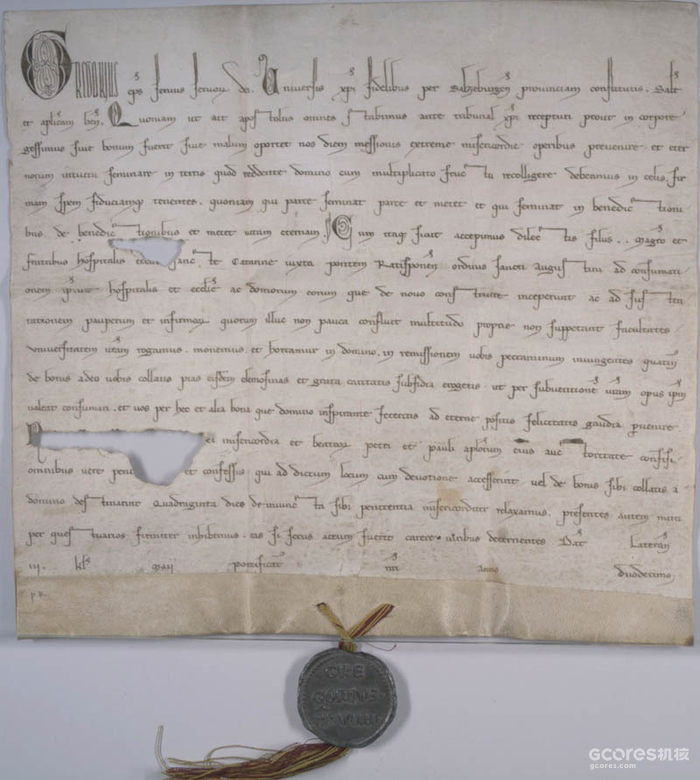 GREGORIUS ep̄s servus servor dei. Universis xp̄i fidelibus per Salzeburgen̄ provinciam constitutis. Salt̄
et aplicam ben̄. Quoniam ut ait apostolus omnes stabimus ante tribunal xp̄i recepturi prout in corpore
gessimus sive bonum fuerit sive malum oportet nos diem messionis extreme misericordie operibus prevenire et eter
norum intuitu seminare in terris quod reddente domino cum multiplicato fructu recolligere debeamus in celis. fir
mam spem fiduciamq tenentes. quoniam qui parce seminat parce et metet et qui seminat in benedictioni
bus de benedictionibus et metet vitam eternam. Cum itaq sicut accepimus dilecti filii . . magr̄ et
fratribus hospitalis sancte Catarine iuxta pontem Ratisponen̄ ordinis sancti Augustini ad consumati
onem ip̄ius hospitalis et eccl̄ie ac domorum eorum que de novo construere inceperunt ac ad susten
tationem pauperum et infirmor quorum illuc non pauca confluit multitudo proprie non suppetant facultates
universitatem vr̄am rogamus. monemus et hortamur in domino. in remissionem vobis peccaminum iniungentes quatin̄
de bonis a deo vobis collatis pias eisdem elemosinas et grata caritatis subsidia erogetis ut per subventionē vr̄am opus ip̄m
valeat consumari. et vos per hec et alia bona que domino inspirante feceritis ad eterne possitis felicitatis gaudia pervenire.
ei misericordia et beatorum petri et pauli ap̄lorum eius auctoritate confisi.
omnibus vere et confessis qui ad dictum locum cum devotione accesserint vel de bonis sibi collatis a
domino destinarint Quadraginta dies de iniuncta sibi penitentia misericorditer relaxamus. presentes autem mitti
per questuarios firmiter inhibemus. eas si secus actum fuerit carere viribus decernentes Dat̄ Lateran̄
iij. kl̄ maii pontificatꝰ nr̄i Anno duodecimo
GCORES机核
gcores.com